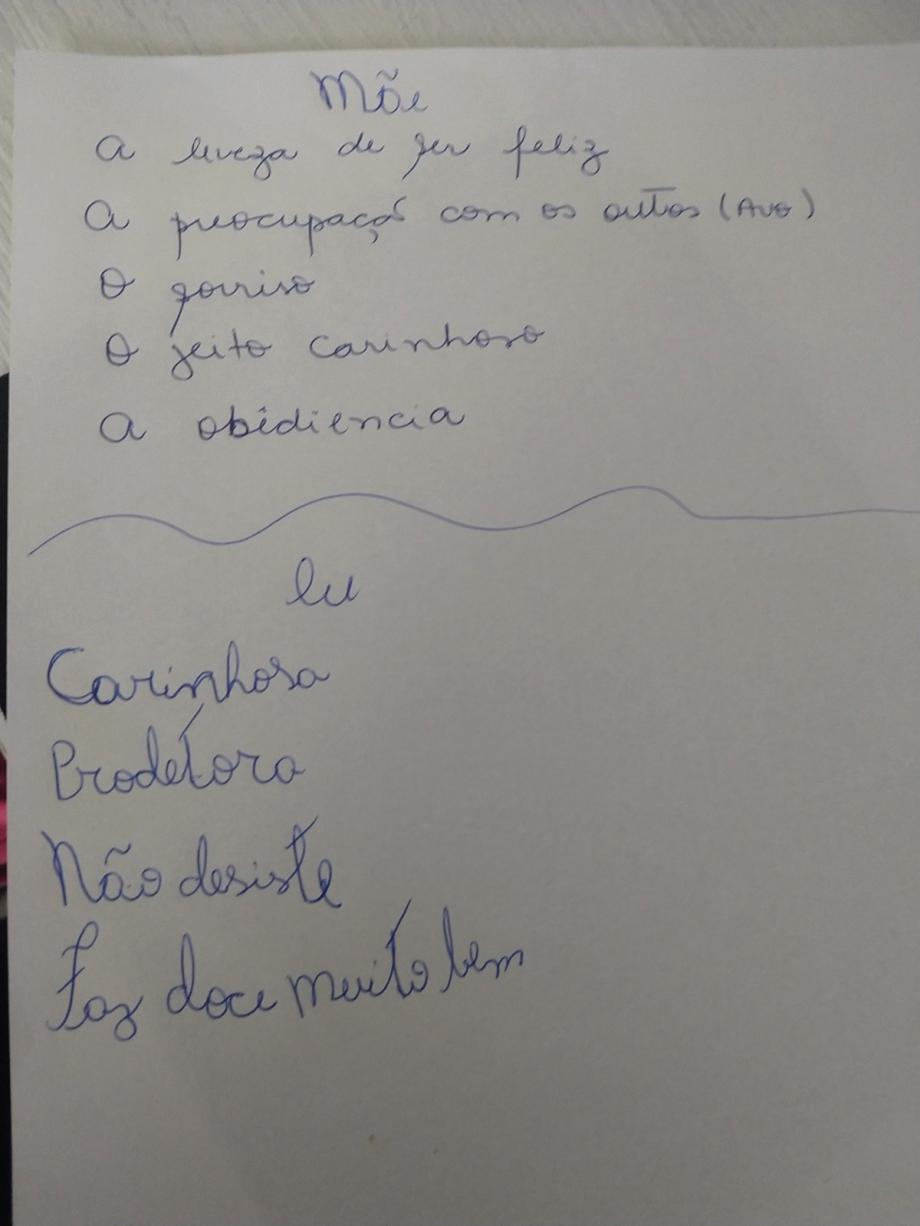 Mãe
A leveza de ser feliz
A preocupação com os outros (Avó)
O sorriso
O jeito carinhoso
A obêdiencia
eu
Carinhosa
Prodetora
Não desiste
Faz doce muito bem